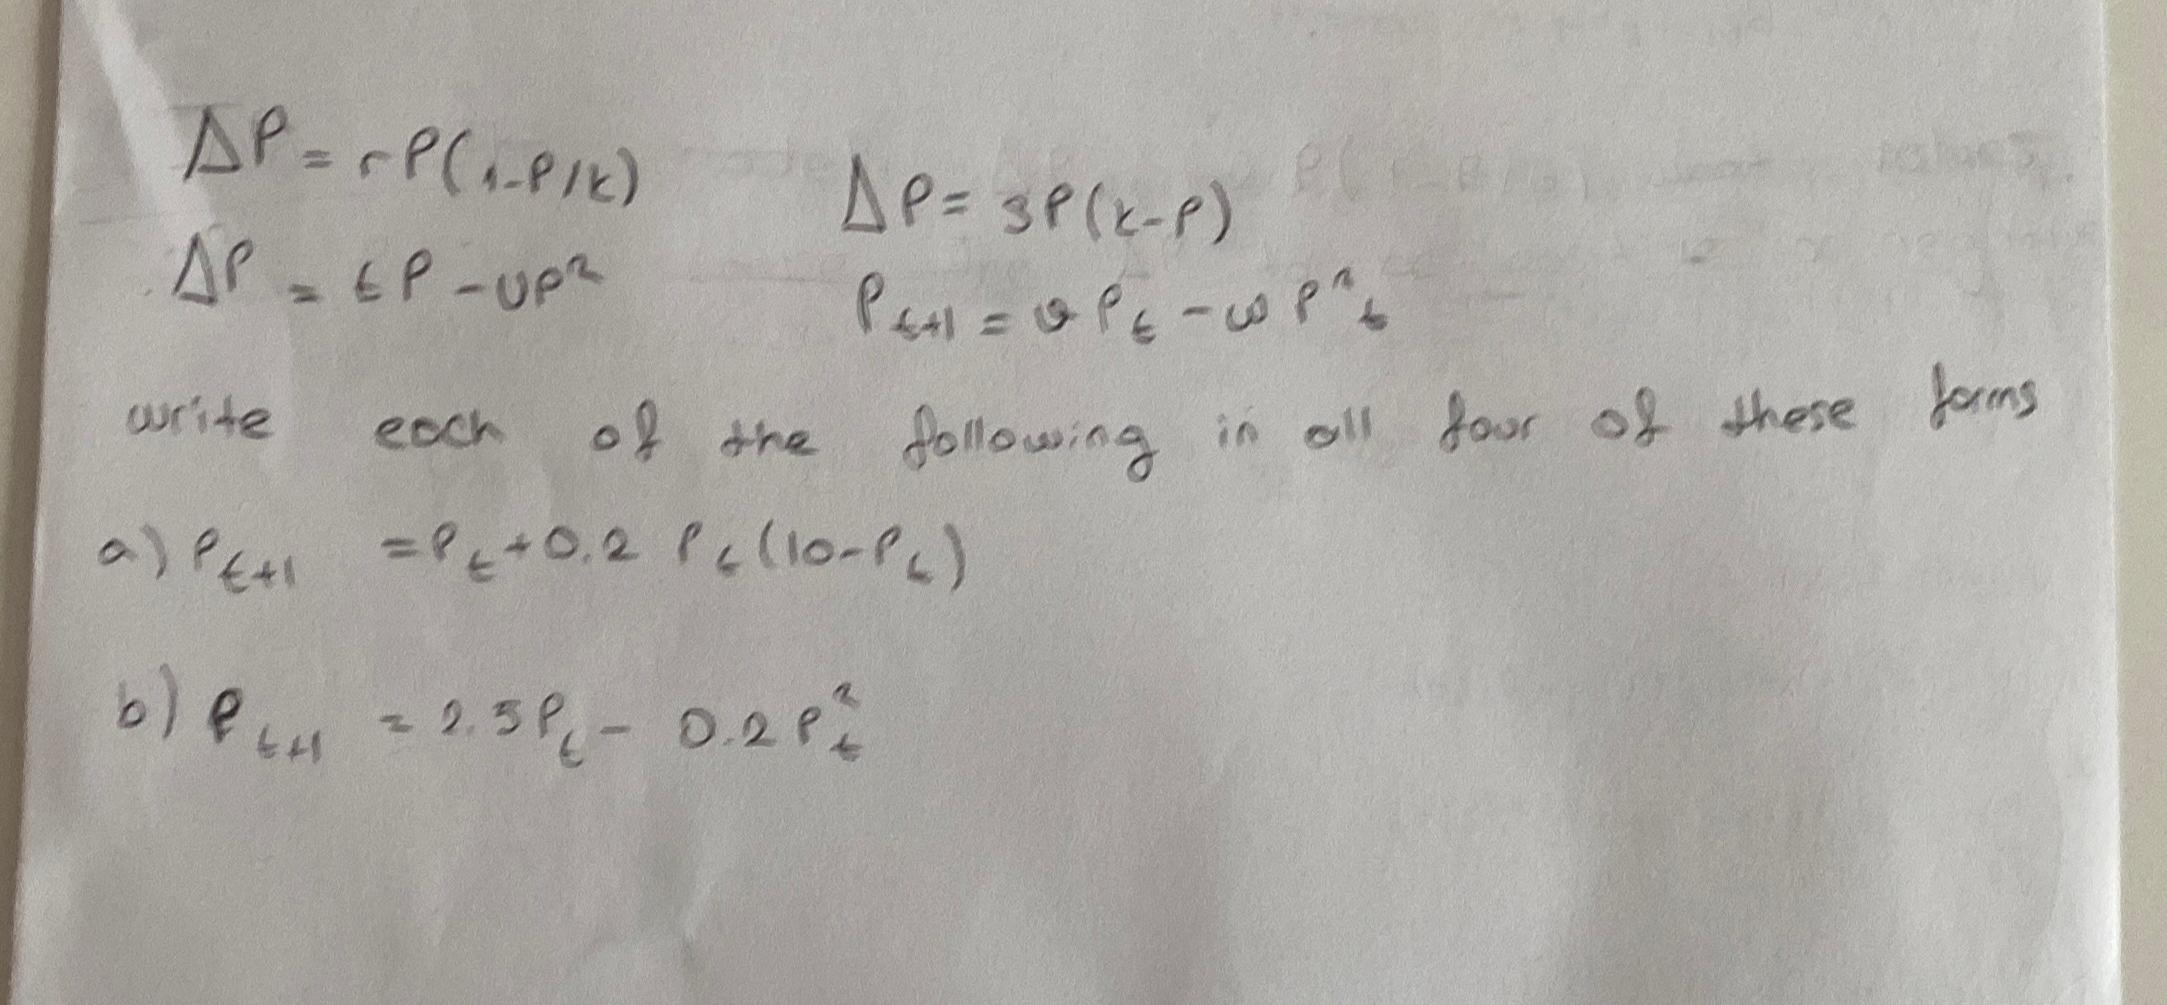 ΔP = rP(1-P/K)
ΔP = sP(K-P)
ΔP = tP - UP²
P_{t+1} = vP_t - wP²_t
write each of the following in all four of these forms
a) P_{t+1} = P_t + 0.2 P_t(10-P_t)
b) P_{t+1} = 2.5P_t - 0.2P_t²